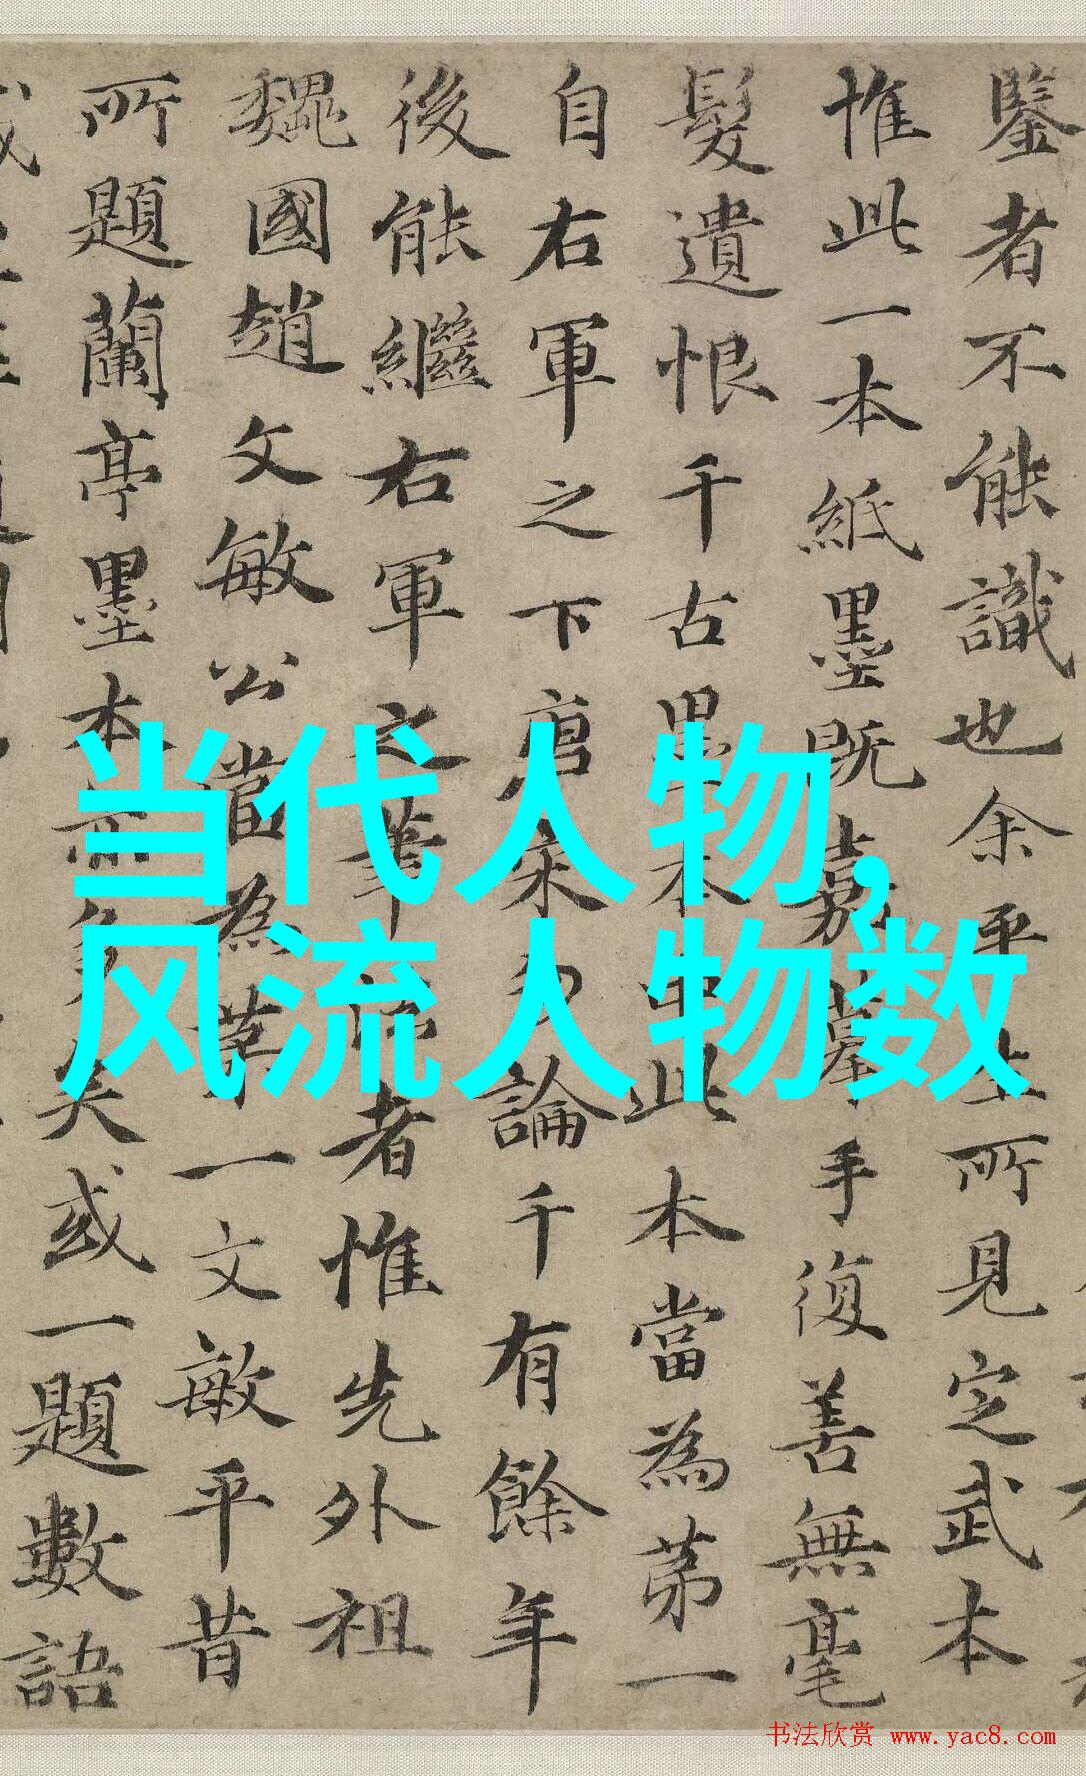 鑒者不能識也余平生所見定武本
惟此一本紙墨既嘉摹手復善無毫
髮遺恨千古墨本中此本當為第一
自右軍之下唐宋勿論千有餘年
後能繼右軍之筆法者惟先外祖
魏國趙文敏公當為第一文敏平昔
所題蘭亭墨本亦多矣或一題數語
当代人物,
风流人物数
书法欣赏 www.yac8.com